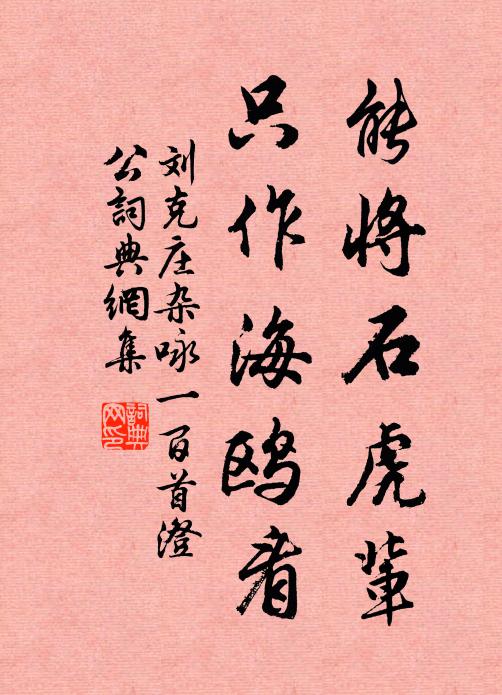 能将石虎辈
只作海鸥看
刘克庄杂咏一百首澄
公詞典網集
詞典
网印